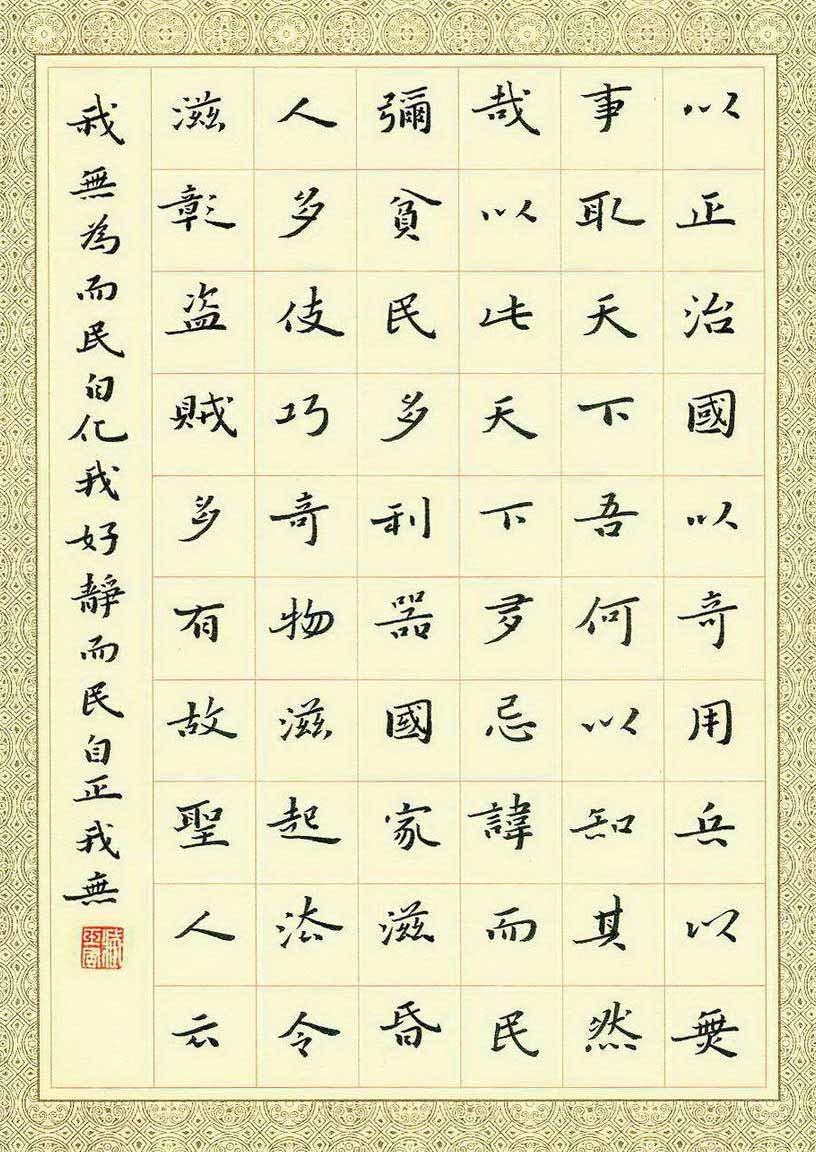 以正治國以奇用兵以無
事取天下吾何以知其然
哉以此天下多忌諱而民
彌貧民多利器國家滋昏
人多伎巧奇物滋起法令
滋彰盜賊多有故聖人云
我無為而民自化我好靜而民自正我無